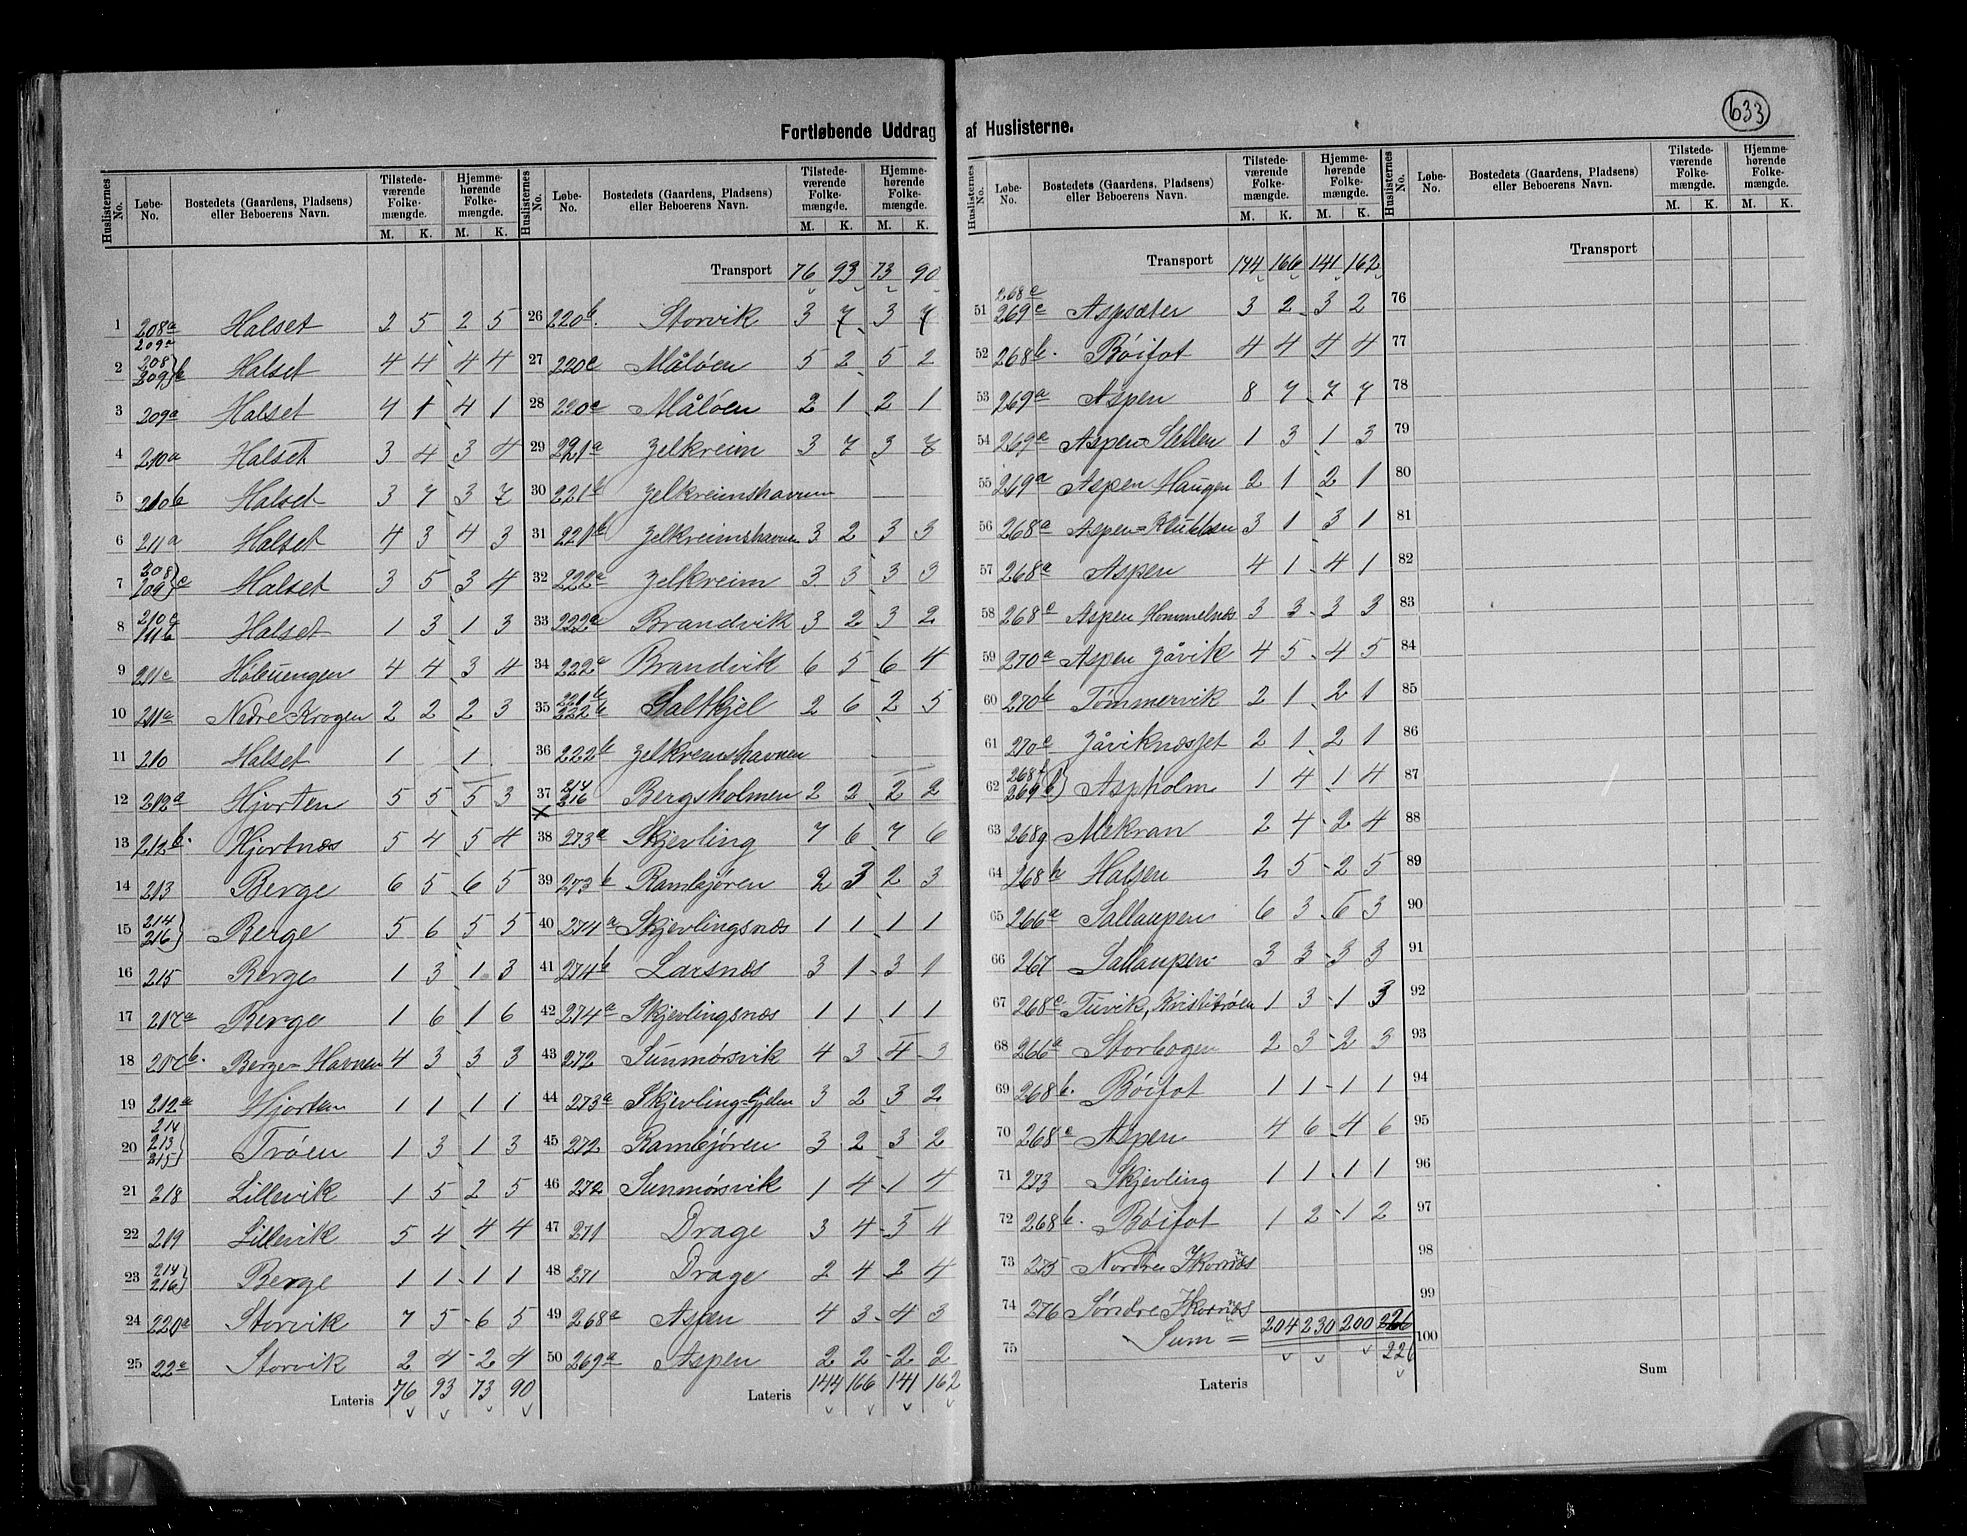 633
Fortløbende Uddrag af Huslisterne.
Huslisternes No. Løbe-No. Bostedets (Gaardens, Pladsens) eller Beboerens Navn. Tilstedeværende Folkemængde. M. K. Hjemmehørende Folkemængde. M. K.
1 208a 209a Halset 2 5 2 5
2 208 209 b Halset 4 4 4 4
3 209a Halset 4 1 4 1
4 210a Halset 3 4 3 4
5 210b Halset 3 7 3 7
6 211a Halset 4 3 4 3
7 208 209 c Halset 3 5 3 4
8 210c 111b Halset 1 3 1 3
9 211c 4 4 3 4
10 211a Nedre-Krogen 2 2 2 3
11 210 Halset 1 1
12 212a Hjorten 5 5 5 3
13 212b. Hjortnæs 5 4 5 4
14 213 Berge 6 5 6 5
15 214 216 Berge 5 6 5 5
16 215 Berge 1 3 1 3
17 217a Berge 1 6 1 6
18 217b. Berge-Havnen 4 3 3 3
19 212a Hjorten 1 1 1 1
20 214 213 215 Trøen 1 3 1 3
21 218 Lillevik 1 5 2 5
22 219 Lillevik 5 4 4 4
23 214 216 Berge 1 1 1 1
24 220a Storvik 7 5 6 5
25 22a Storvik 2 4 2 4
Lateris 76 93 73 90
Huslisternes No. Løbe-No. Bostedets (Gaardens, Pladsens) eller Beboerens Navn. Tilstedeværende Folkemængde. M. K. Hjemmehørende Folkemængde. M. K.
Transport 76 93 73 90
26 220b. Storvik 3 7 3 7
27 220c Måløen 5 2 5 2
28 220c Måløen 2 1 2 1
29 221a Jelkreim 3 7 3 7
30 221b Jelkreimshavnen
31 221b Jelkreimshavnen 3 2 3 3
32 222a Jelkreim 3 3 3 3
33 222a Brandvik 3 2 3 2
34 222a Brandvik 6 5 6 4
35 221b 222b Saltkjel 2 6 2 5
36 222b Jelkreimshavnen
37 214 216 Bergsholmen 2 2 2 2
38 273a Skjevling 7 6 7 6
39 273b Rambjøren 2 3 2 3
40 274a Skjevlingsnæs 1 1 1 1
41 274b Larsnæs 3 1 3 1
42 274a Skjevlingsnæs 1 1 1 1
43 272 Sunmørsvik 4 3 4 3
44 273a Skjevling-Gjelen 3 2 3 2
45 272 Rambjøren 3 2 3 2
46 272 Sunmørsvik 1 4 1 4
47 271 Drage 3 4 3 4
48 271 Drage 2 4 2 4
49 268a Aspen 4 3 4 3
50 269a Aspen 2 2 2 2
Lateris 144 166 141 162
Huslisternes No. Løbe-No. Bostedets (Gaardens, Pladsens) eller Beboerens Navn. Tilstedeværende Folkemængde. M. K. Hjemmehørende Folkemængde. M. K.
Transport 144 166 141 162
51 268c 269c Aspsæter 3 2 3 2
52 268b. Bøifot 4 4 4 4
53 269a Aspen 8 7 7 7
54 269a Aspen-Sletten 1 3 1 3
55 269a Aspen Haugen 2 1 2 1
56 268a 3 1 3 1
57 268a Aspen 4 1 4 1
58 268c Aspen Hommelnæs 3 3 3 3
59 270a Aspen Jåvik 4 5 4 5
60 270b Tømmervik 2 1 2 1
61 270c Jåviknæsset 2 1 2 1
62 268f 269b Aspholm 1 4 1 4
63 268g Mekran 2 4 2 4
64 268h Halsen 2 5 2 5
65 266a Sallaupen 6 3 6 3
66 267 Sallaupen 3 3 3 3
67 268c Tuvik, 1 3 1 3
68 266a Storbogen 2 3 2 3
69 268b. Bøifot 1 1 1 1
70 268c Aspen 4 6 4 6
71 273 Skjevling 1 1 1 1
72 268b. Bøifot 1 2 1 2
73 275 Nordre Ikornnæs
74 276 Søndre Ikornnæs
75 Sum = 204 230 200 226
226
Lateris
Huslisternes No. Løbe-No. Bostedets (Gaardens, Pladsens) eller Beboerens Navn. Tilstedeværende Folkemængde. M. K. Hjemmehørende Folkemængde. M. K.
Transport
76
77
78
79
80
81
82
83
84
85
86
87
88
89
90
91
92
93
94
95
96
97
98
99
100
Sum